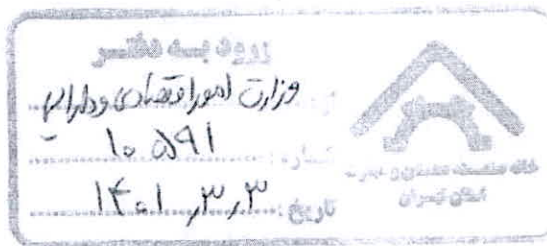 ورود به دفتر
وزارت امور اقتصادی و دارایی
شماره: ۱۰۵۹۱
تاریخ: ۱۴۰۱,۳,۳
خانه صنعت، معدن و تجارت
استان تهران